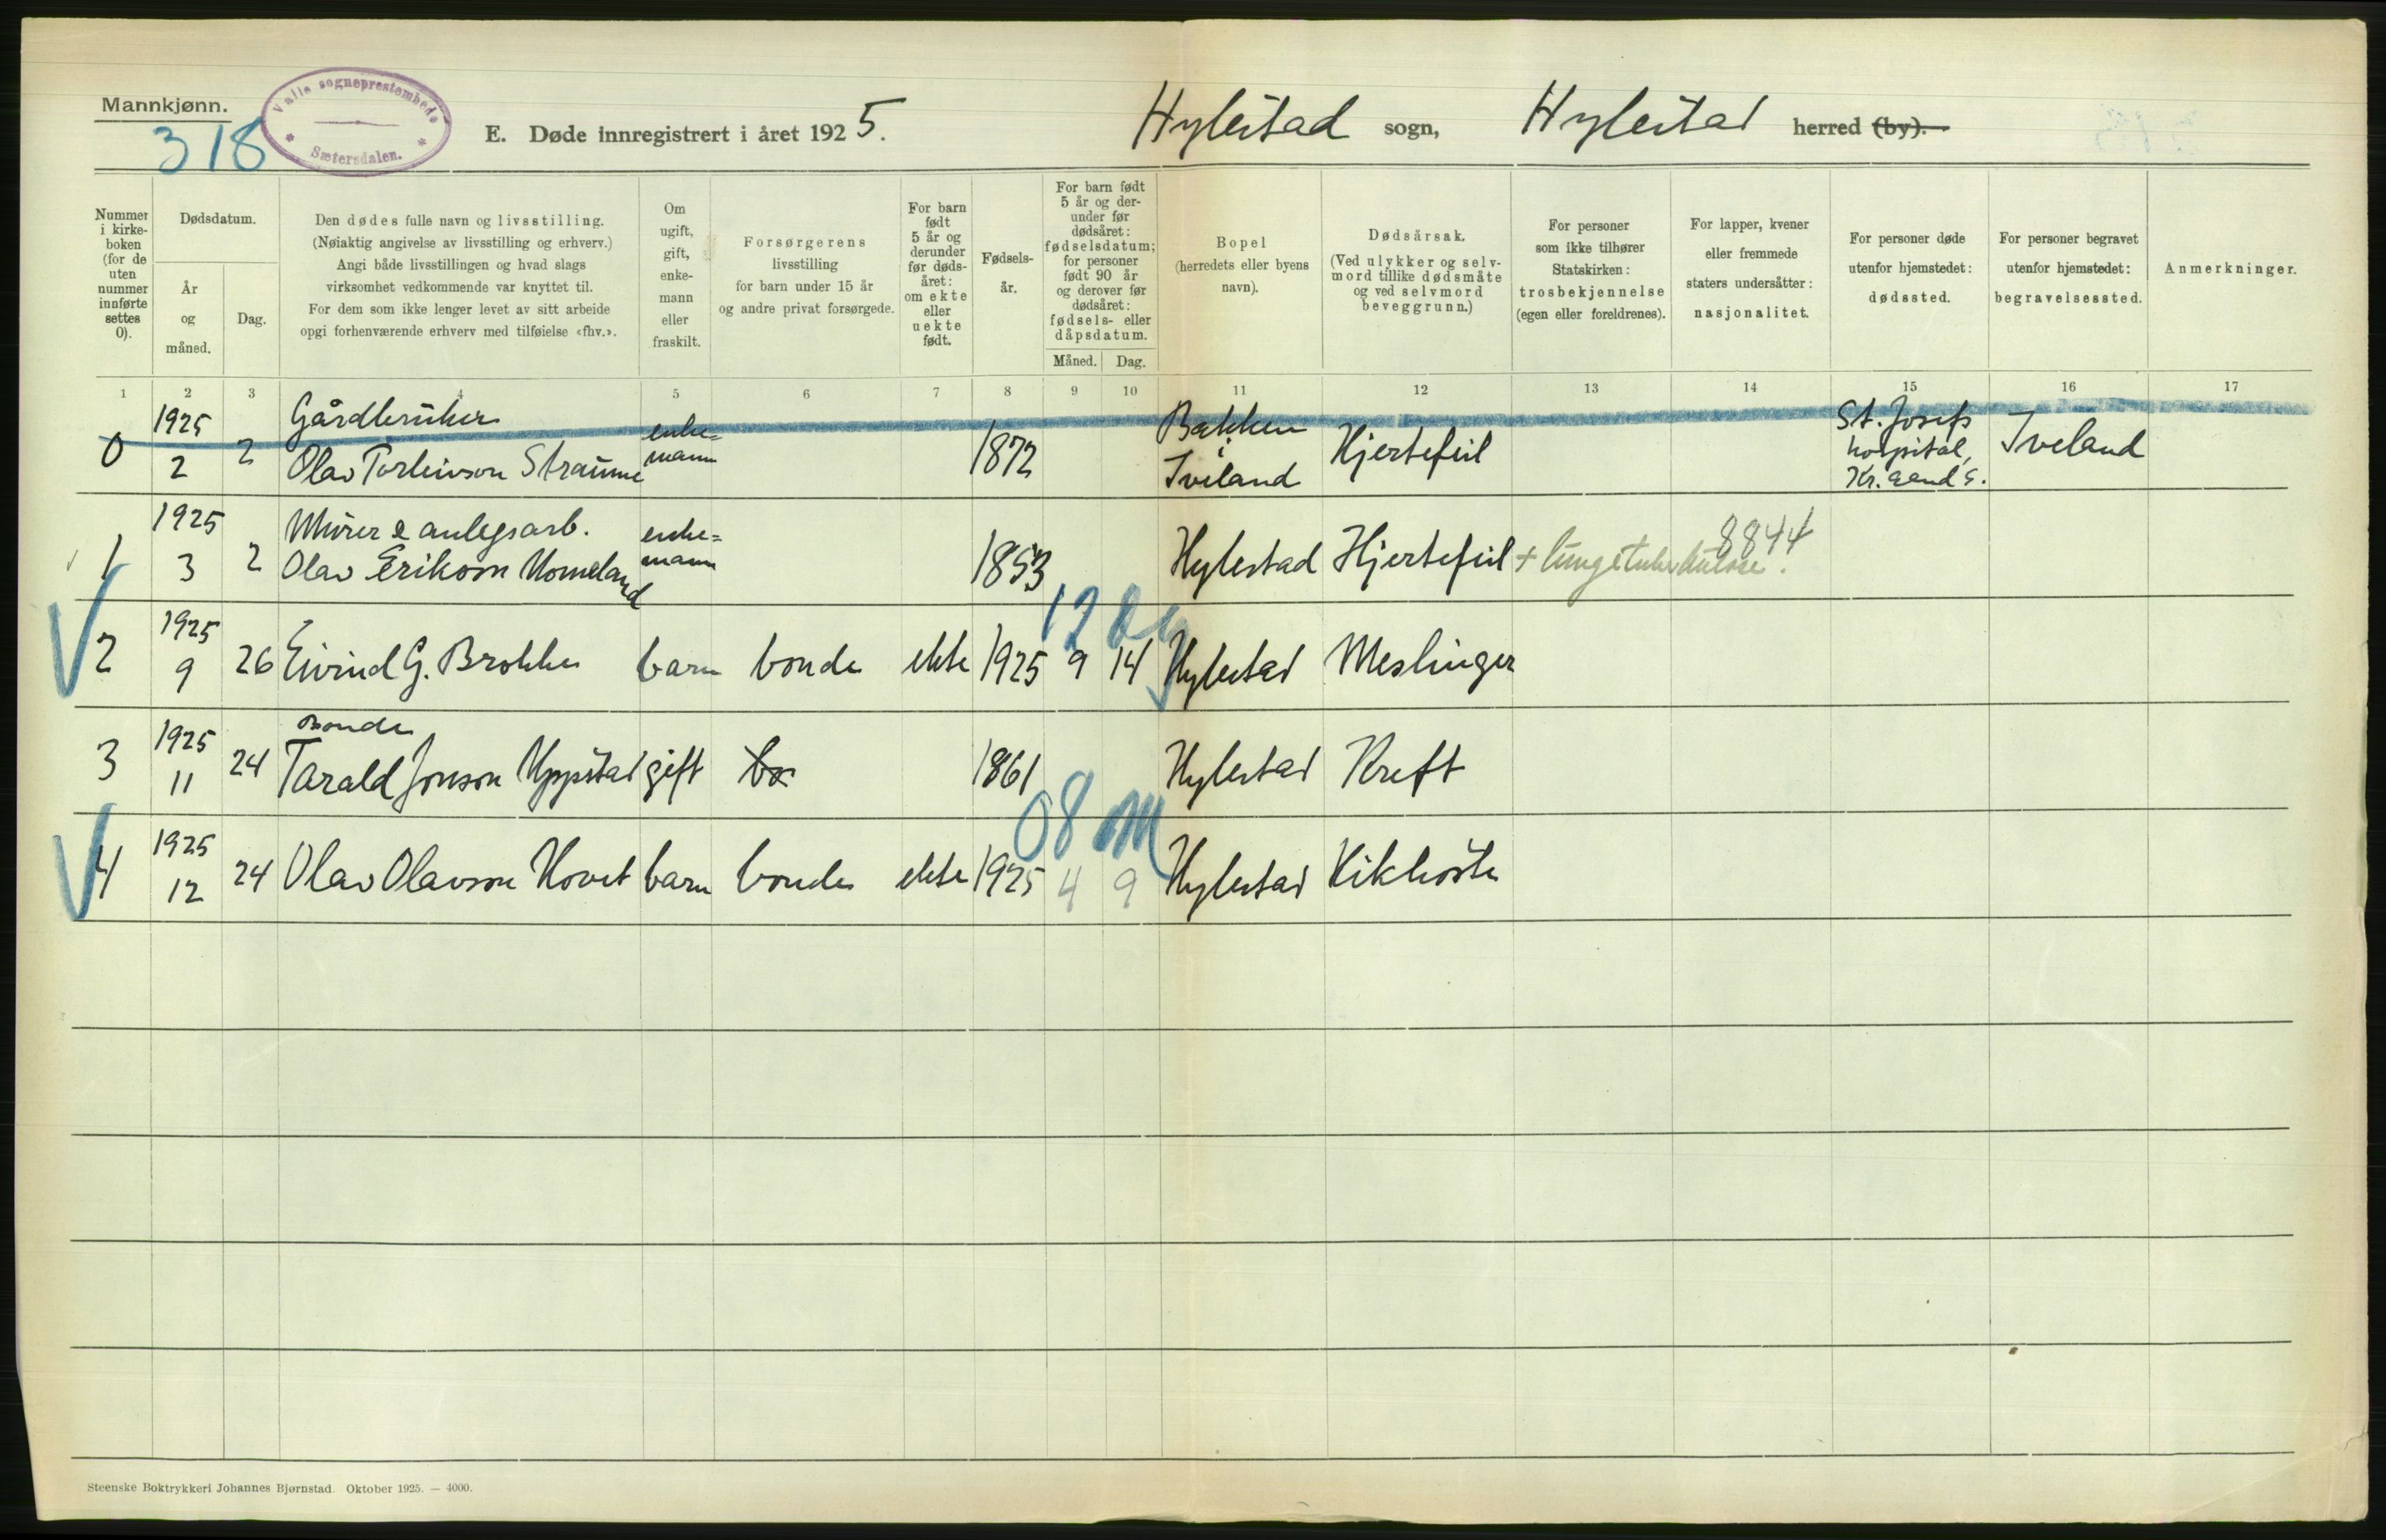 Mannkjønn.
318
Valle sogneprestembede
Sætersdalen.
E. Døde innregistrert i året 1925.
Hylestad sogn, Hylestad herred (by).
Nummer i kirke-
boken
(for de
uten
nummer
innførte
settes
0).
Dødsdatum.
År
og
måned.
Dag.
Den dødes fulle navn og livsstilling.
(Nøiaktig angivelse av livsstilling og erhverv.)
Angi både livsstillingen og hvad slags
virksomhet vedkommende var knyttet til.
For dem som ikke lenger levet av sitt arbeide
opgi forhenværende erhverv med tilføielse «fhv.».
Om
ugift,
gift,
enke-
mann
eller
fraskilt.
Forsørgerens
livsstilling
for barn under 15 år
og andre privat forsørgede.
For barn
født
5 år og
derunder
før døds-
året:
om ekte
eller
uekte
født.
Fødsels-
år.
For barn født
5 år og der-
under før
dødsåret:
fødselsdatum;
for personer
født 90 år
og derover før
dødsåret:
fødsels- eller
dåpsdatum.
Måned. Dag.
Bopel
(herredets eller byens
navn).
Dødsårsak.
(Ved ulykker og selv-
mord tillike dødsmåte
og ved selvmord
beveggrunn.)
For personer
som ikke tilhører
Statskirken:
trosbekjennelse
(egen eller foreldrenes).
For lapper, kvener
eller fremmede
staters undersåtter:
nasjonalitet.
For personer døde
utenfor hjemstedet:
dødssted.
For personer begravet
utenfor hjemstedet:
begravelsessted.
Anmerkninger.
1 2 3 4 5 6 7 8 9 10 11 12 13 14 15 16 17
1925 Gårdbruker enke= Bakken St. Josefs
0 2 2 Olav Torleivson Straume mann 1872 i Iveland Hjertefeil hospital, Iveland
Kr.sand S.
1925 Murer & anlegsarb. enke= 8844
1 3 2 Olav Erikson Homeland mann 1853 Hylestad Hjertefeil + lungetuberkulose.
1925 12 D
2 9 26 Eivind G. Brokke barn bonde ekte 1925 9 14 Hylestad Meslinger
1925 Bonde
3 11 24 Tarald Jonson Uppstad gift bo 1861 Hylestad Kreft
1925 08 M
4 12 24 Olav Olavson Hovet barn bonde ekte 1925 4 9 Hylestad Kikhoste
Steenske Boktrykkeri Johannes Bjørnstad. Oktober 1925. — 4000.